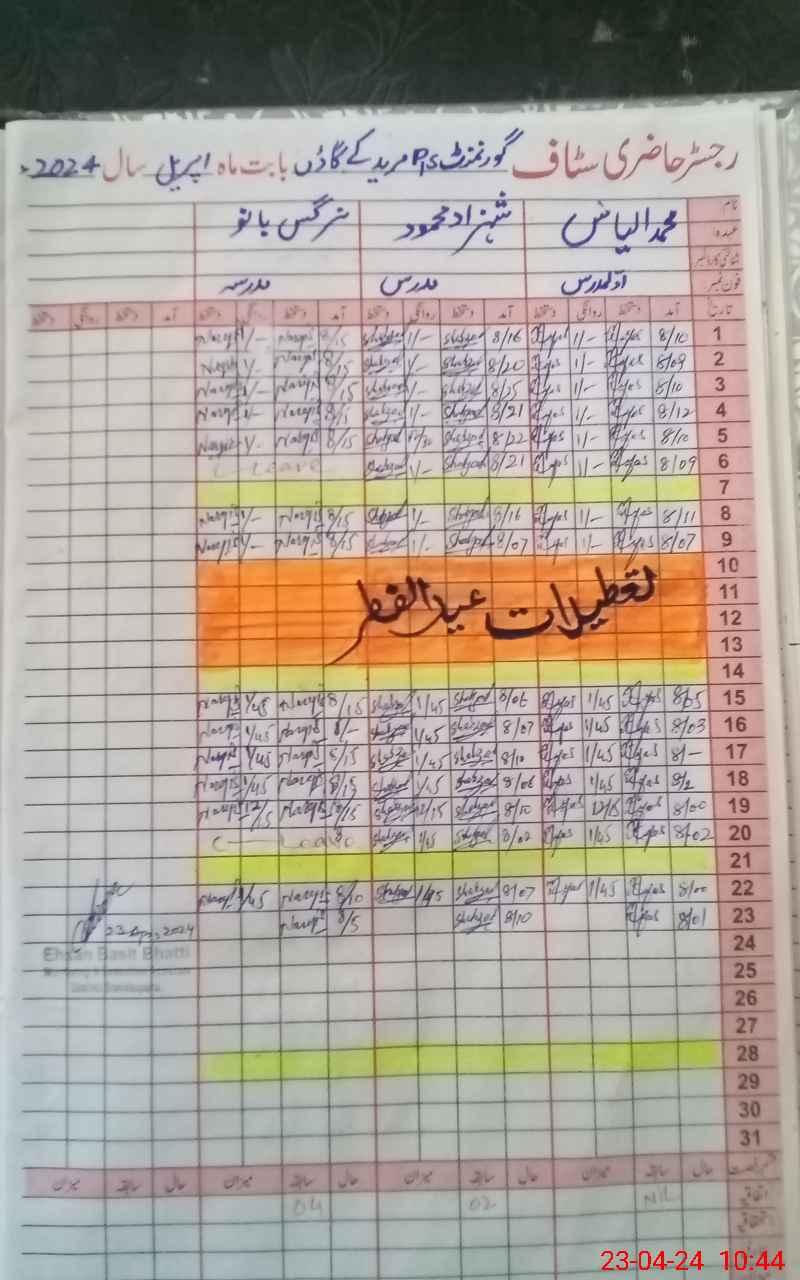 رجسٹر حاضری سٹاف گورنمنٹ P/S مریدکے گاؤں بابت ماہ اپریل سال 2024
نام محمد الیاس شہزاد محمود نرگس بانو
عہدہ
شناختی کارڈ نمبر
فون نمبر اول مدرس مدرس مدرسہ
تاریخ آمد دستخط روانگی دستخط آمد دستخط روانگی دستخط آمد دستخط روانگی دستخط آمد دستخط روانگی دستخط
1 8/10 Ilyas 1/- Ilyas 8/16 Shahzad 1/- Shahzad 8/15 Nargis 1/- Nargis
2 8/09 Ilyas 1/- Ilyas 8/20 Shahzad 1/- Shahzad 8/15 Nargis 1/- Nargis
3 8/10 Ilyas 1/- Ilyas 8/25 Shahzad 1/- Shahzad 8/15 Nargis 1/- Nargis
4 8/12 Ilyas 1/- Ilyas 8/21 Shahzad 1/- Shahzad 8/15 Nargis 1/- Nargis
5 8/10 Ilyas 1/- Ilyas 8/22 Shahzad Shahzad 8/15 Nargis 1/- Nargis
6 8/09 Ilyas 1/- Ilyas 8/21 Shahzad 1/- Shahzad C- Leave
7
8 8/11 Ilyas 1/- Ilyas 8/16 Shahzad 1/- Shahzad 8/15 Nargis 1/- Nargis
9 8/07 Ilyas 1/- Ilyas 8/07 Shahzad 1/- Shahzad 8/15 Nargis 1/- Nargis
10
11 تعطیلات عید الفطر
12
13
14
15 8/05 Ilyas 1/45 Ilyas 8/06 Shahzad 1/45 Shahzad 8/15 Nargis 1/45 Nargis
16 8/03 Ilyas 1/45 Ilyas 8/07 Shahzad 1/45 Shahzad 8/- Nargis 1/45 Nargis
17 8/- Ilyas 1/45 Ilyas 8/10 Shahzad 1/45 Shahzad 8/15 Nargis 1/45 Nargis
18 8/2 Ilyas 1/45 Ilyas 8/06 Shahzad 1/45 Shahzad 8/15 Nargis 1/45 Nargis
19 8/00 Ilyas 12/15 Ilyas 8/10 Shahzad 12/15 Shahzad 8/15 Nargis 12/15 Nargis
20 8/02 Ilyas 1/45 Ilyas 8/02 Shahzad 1/45 Shahzad C- Leave
21
22 8/00 Ilyas 1/45 Ilyas 8/07 Shahzad 1/45 Shahzad 8/10 Nargis 1/45 Nargis
23 8/01 Ilyas 8/10 Shahzad 8/5 Nargis 23 Apr, 2024
24 Ehsan Basit Bhatti
25
26
27
28
29
30
31
حال سابقہ میزان حال سابقہ میزان حال سابقہ میزان حال سابقہ میزان
اتفاقیہ NIL 02 04
23-04-24 10:44